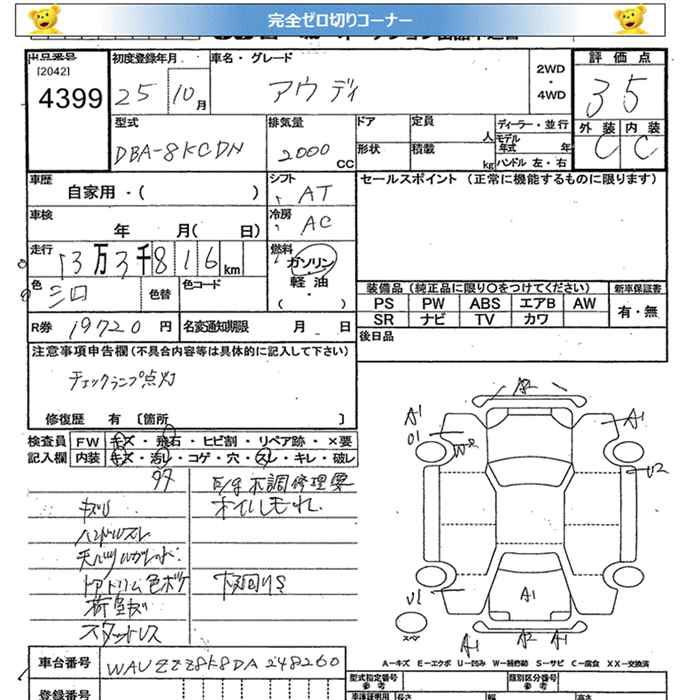 完全ゼロ切りコーナー
出品番号
[2042]
4399
初度登録年月
25 10月
車名・グレード
アウディ
2WD
・
4WD
評価点
3 5
外装 内装
C C
型式
DBA-8KCDN
排気量
2000 CC
ドア
定員
人
形状
積載
kg
ディーラー・並行
モデル年式 年
ハンドル 左・右
車歴
自家用・( )
シフト
AT
車検
年 月( 日)
冷房
AC
走行
13万3千816km
燃料
ガソリン
・
軽油
( ・ )
色
色替
色コード
R券 19720円
名変通知期限 月 日
セールスポイント (正常に機能するものに限ります)
装備品(純正品に限り〇をつけてください)
新車保証書
PS PW ABS エアB AW
SR ナビ TV カワ
有・無
後日品
注意事項申告欄(不具合内容等は具体的に記入して下さい)
チェックランプ点灯
修復歴 有 〔箇所 〕
検査員 FW キズ・飛石・ヒビ割・リペア跡・×要
記入欄 内装 キズ・汚レ・コゲ・穴・スレ・キレ・破レ
E/g不調修理要
キズリ オイルもれ
ハンドルスレ
ドアトリム色ボケ 下回りS
荷室キズ
スタットレス
A2
A1
U1
W2
A1
U2
U1
A1
スペア
A1 A2 A1
A-キズ E-エクボ U-凹み W-補修跡 S-サビ C-腐食 XX-交換済
車台番号 WAUZZZ8K8DA248260
登録番号
型式指定番号
参考
類別区分番号
参考
長さ 幅 高さ